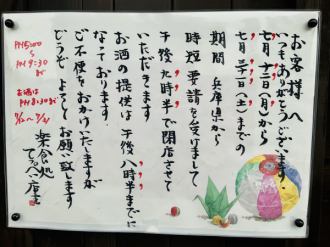 お客様へ
いつもありがとうございます。
七月十二日(月)から
七月三十一日(土)までの
期間 兵庫県から
時短要請を受けまして
午後九時半で閉店させて
いただきます
お酒の提供は午後八時半までに
なっております。
ご不便をおかけいたしますが
どうぞよろしくお願い致します
楽食処
店主
PM5:00
PM9:30
まで
お酒は
PM8:30まで
7/12〜7/31